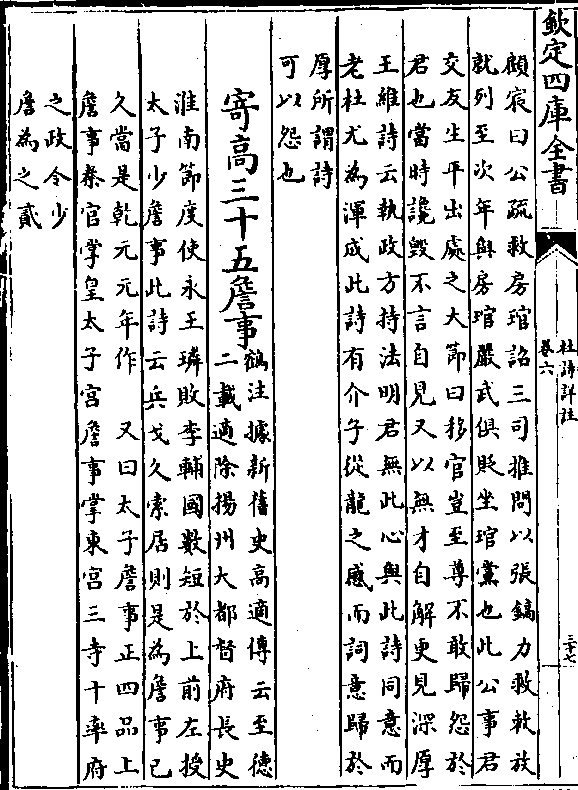 欽定四庫全書
杜詩詳註
卷六
三十七
顧宸曰公疏救房琯詔三司推問以張鎬力救敕放
就列至次年與房琯嚴武俱貶坐琯黨也此公事君
交友生平出處之大節曰移官豈至尊不敢歸怨於
君也當時讒毀不言自見又以無才自解更見深厚
王維詩云執政方持法明君無此心與此詩同意而
老杜尤為渾成此詩有介子從龍之感而詞意歸於
厚所謂詩
可以怨也
寄高三十五詹事
鶴注據新舊史高適傳云至德
二載適除揚州大都督府長史
淮南節度使永王璘敗李輔國數短於上前左授
太子少詹事此詩云兵戈久索居則是為詹事已
久當是乾元元年作 又曰太子詹事正四品上
詹事秦官掌皇太子宮詹事掌東宮三寺十率府
之政令少
詹為之貳